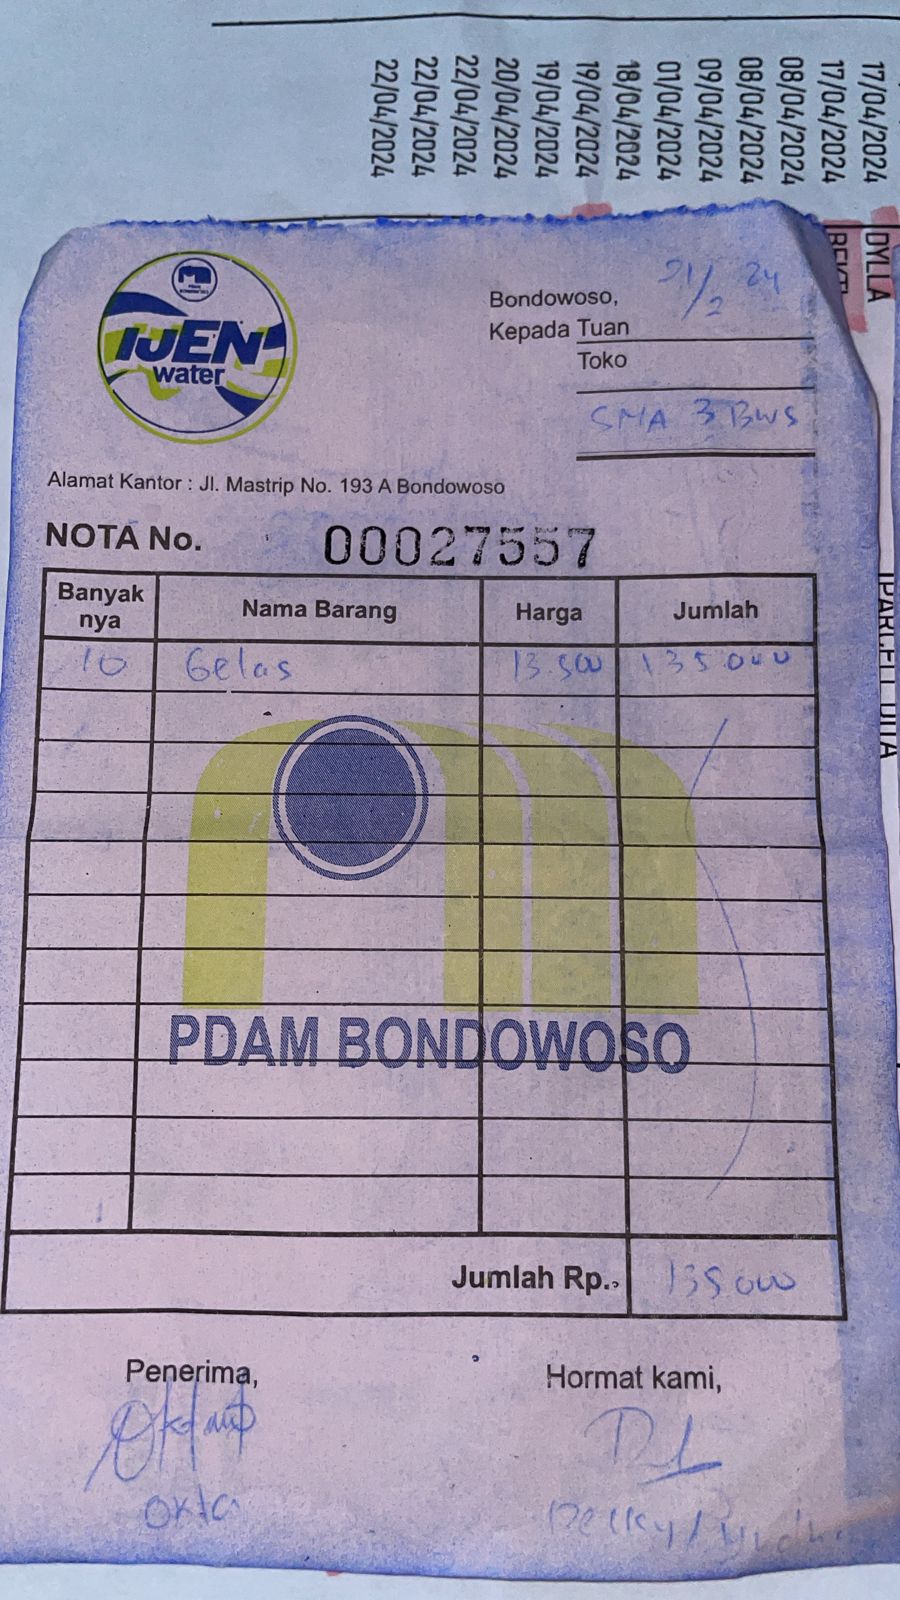 22/04/2024
22/04/2024
22/04/2024
20/04/2024
19/04/2024
19/04/2024
18/04/2024
01/04/2024
09/04/2024
08/04/2024
08/04/2024
17/04/2024
17/04/2024
DYLLA
IJEN
water
Bondowoso, 21/2 24
Kepada Tuan
Toko
SMA 3 BWS
Alamat Kantor : Jl. Mastrip No. 193 A Bondowoso
NOTA No. 00027557
Banyak nya Nama Barang Harga Jumlah
10 Gelas 13.500 135000
PDAM BONDOWOSO
Jumlah Rp. 135000
Penerima, Hormat kami,
Okta